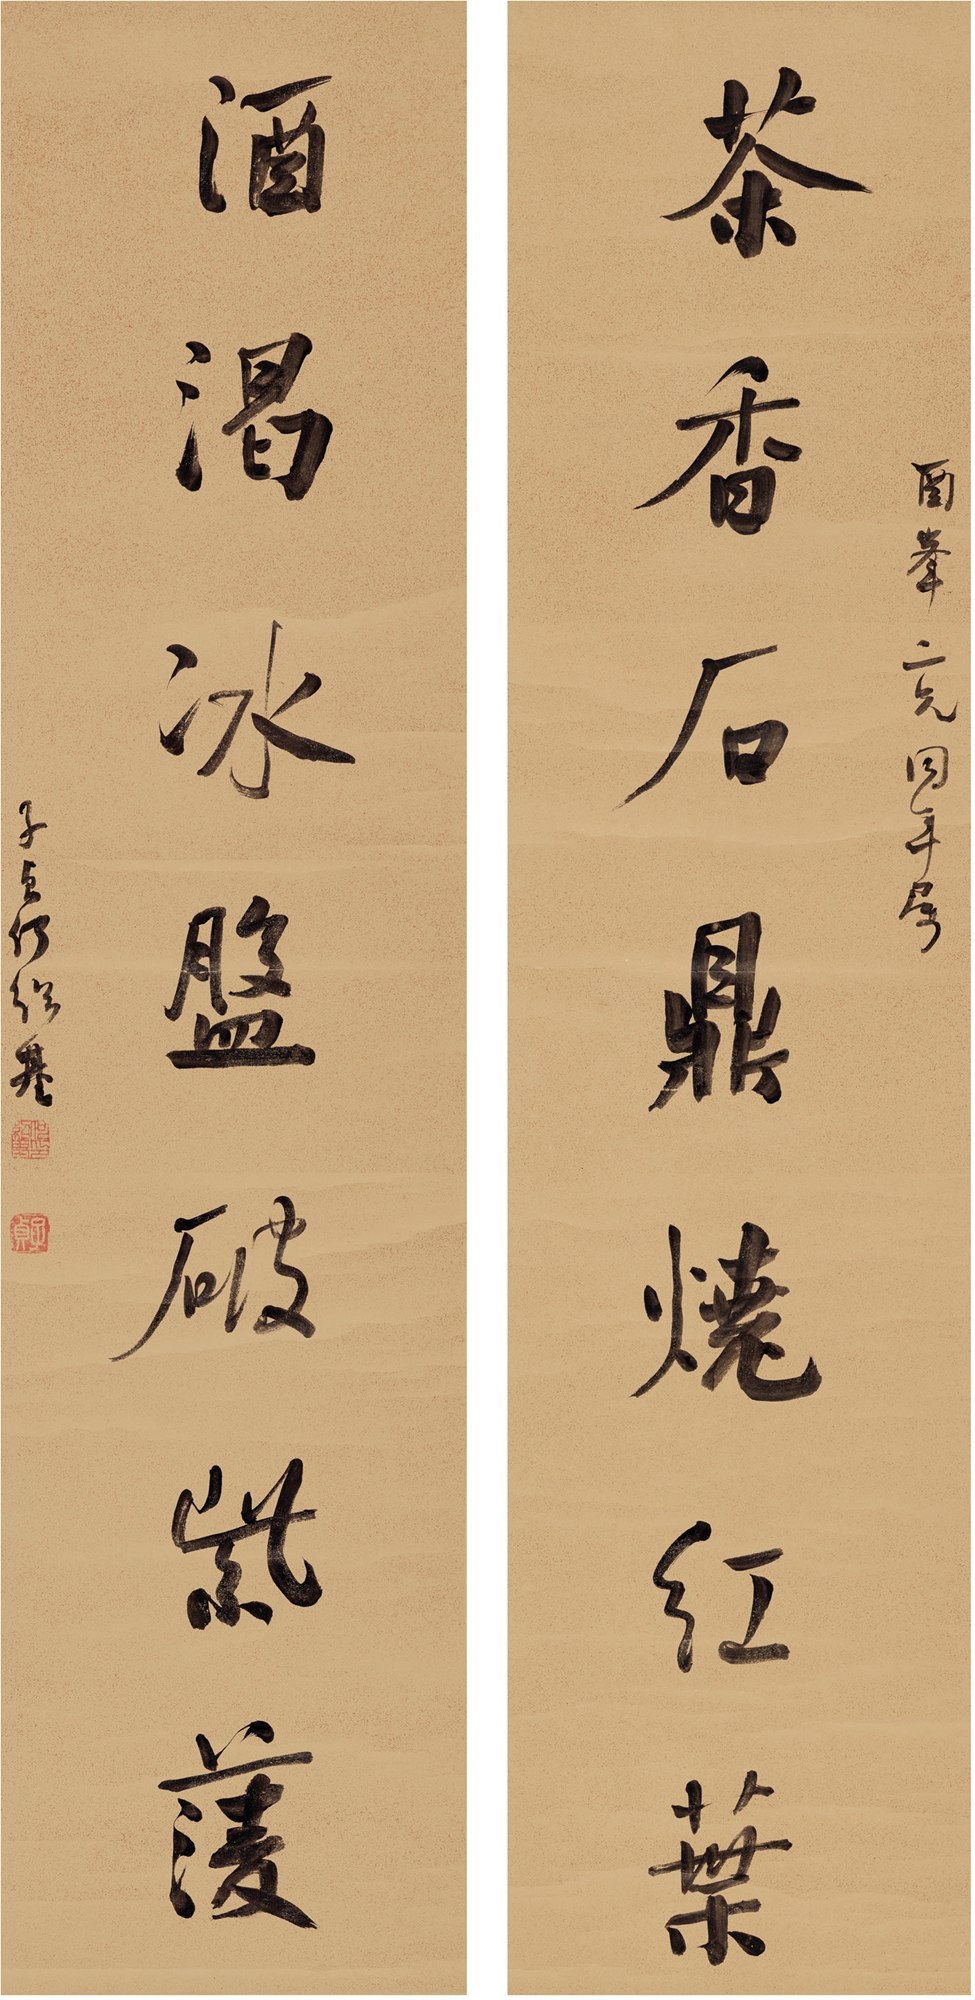 茶香石鼎燒紅葉
酉峯二兄同年屬
酒渴冰盤破紫蔆
子貞何紹基
子貞